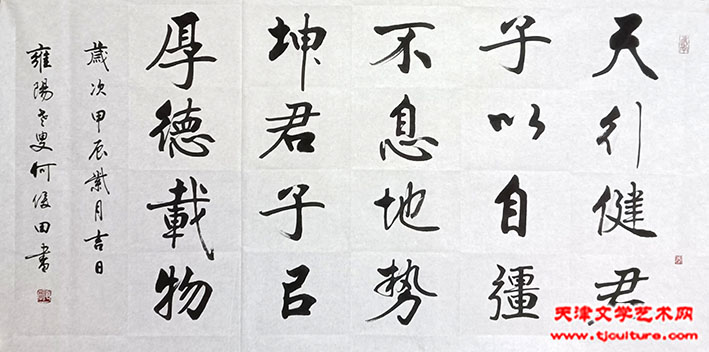 天行健君
子以自彊
不息地勢
坤君子㠯
厚德載物
歲次甲辰月吉日
雍陽老叟何俊田書
天津文学艺术网
www.tjculture.com